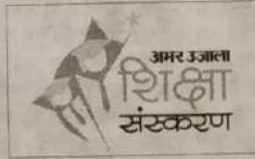 अमर उजाला
शिक्षा
संस्करण